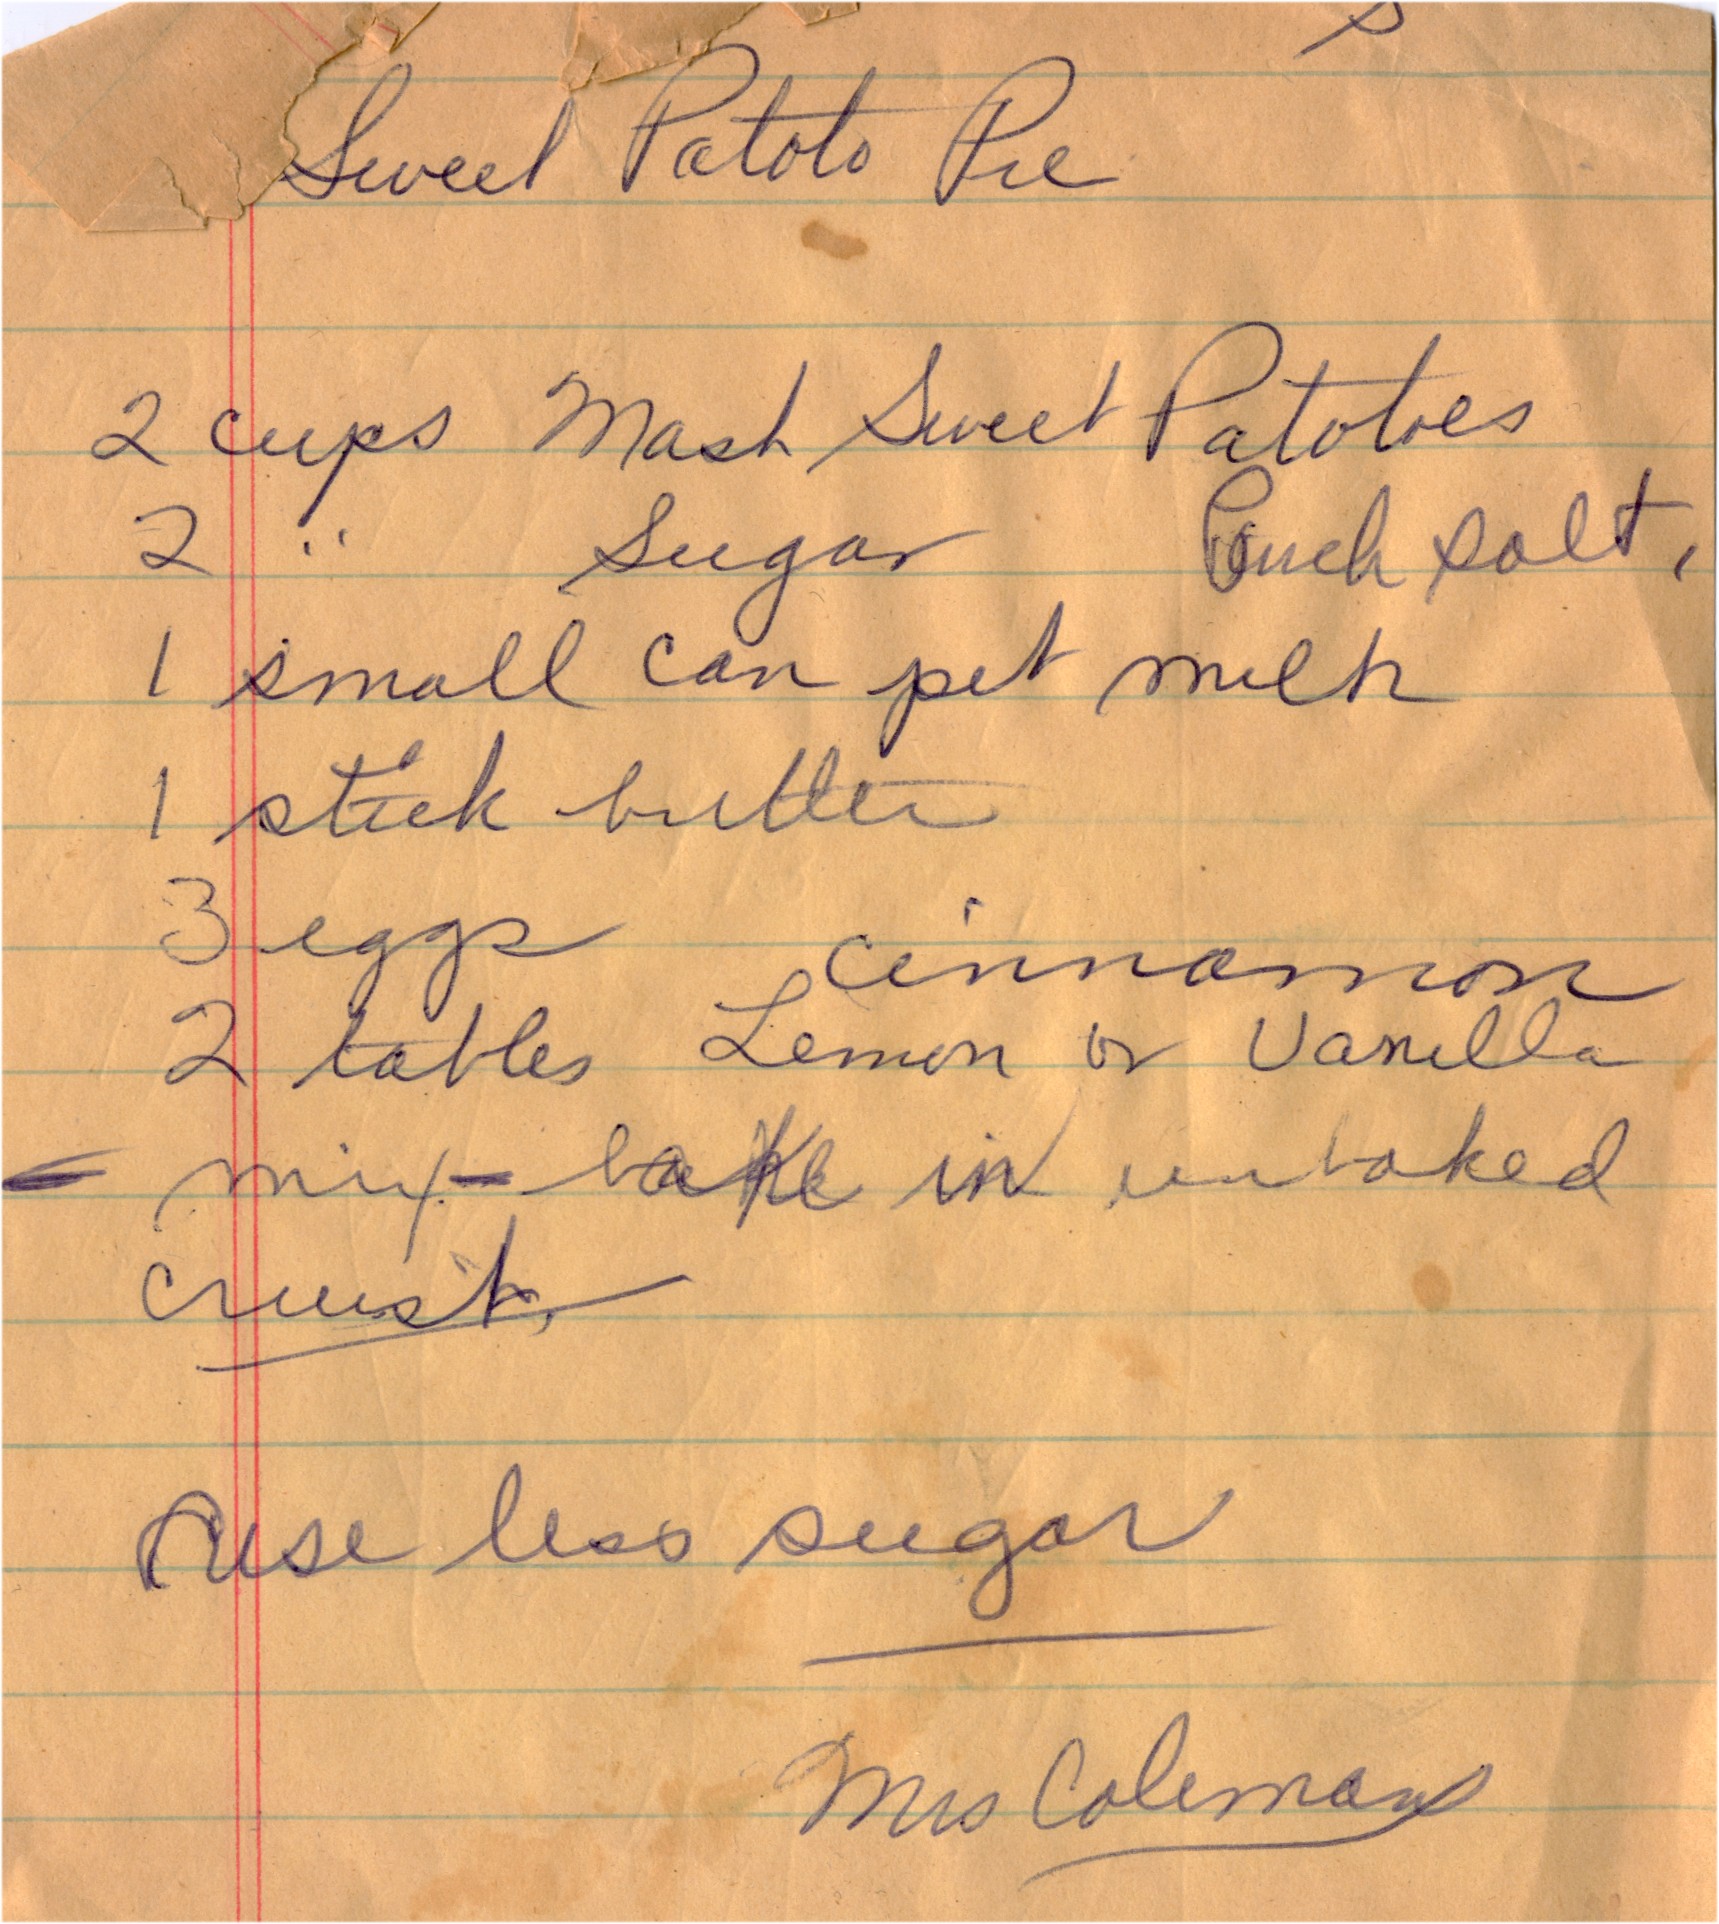 Sweet Patoto Pie
2 cups Mash Sweet Patotoes
2 " Sugar Pinch salt,
1 small can pet milk
1 stick butter
3 eggs cinnamon
2 tables Lemon or Vanilla
- mix - bake in unbaked
crust.
use less sugar
Mrs Colemans